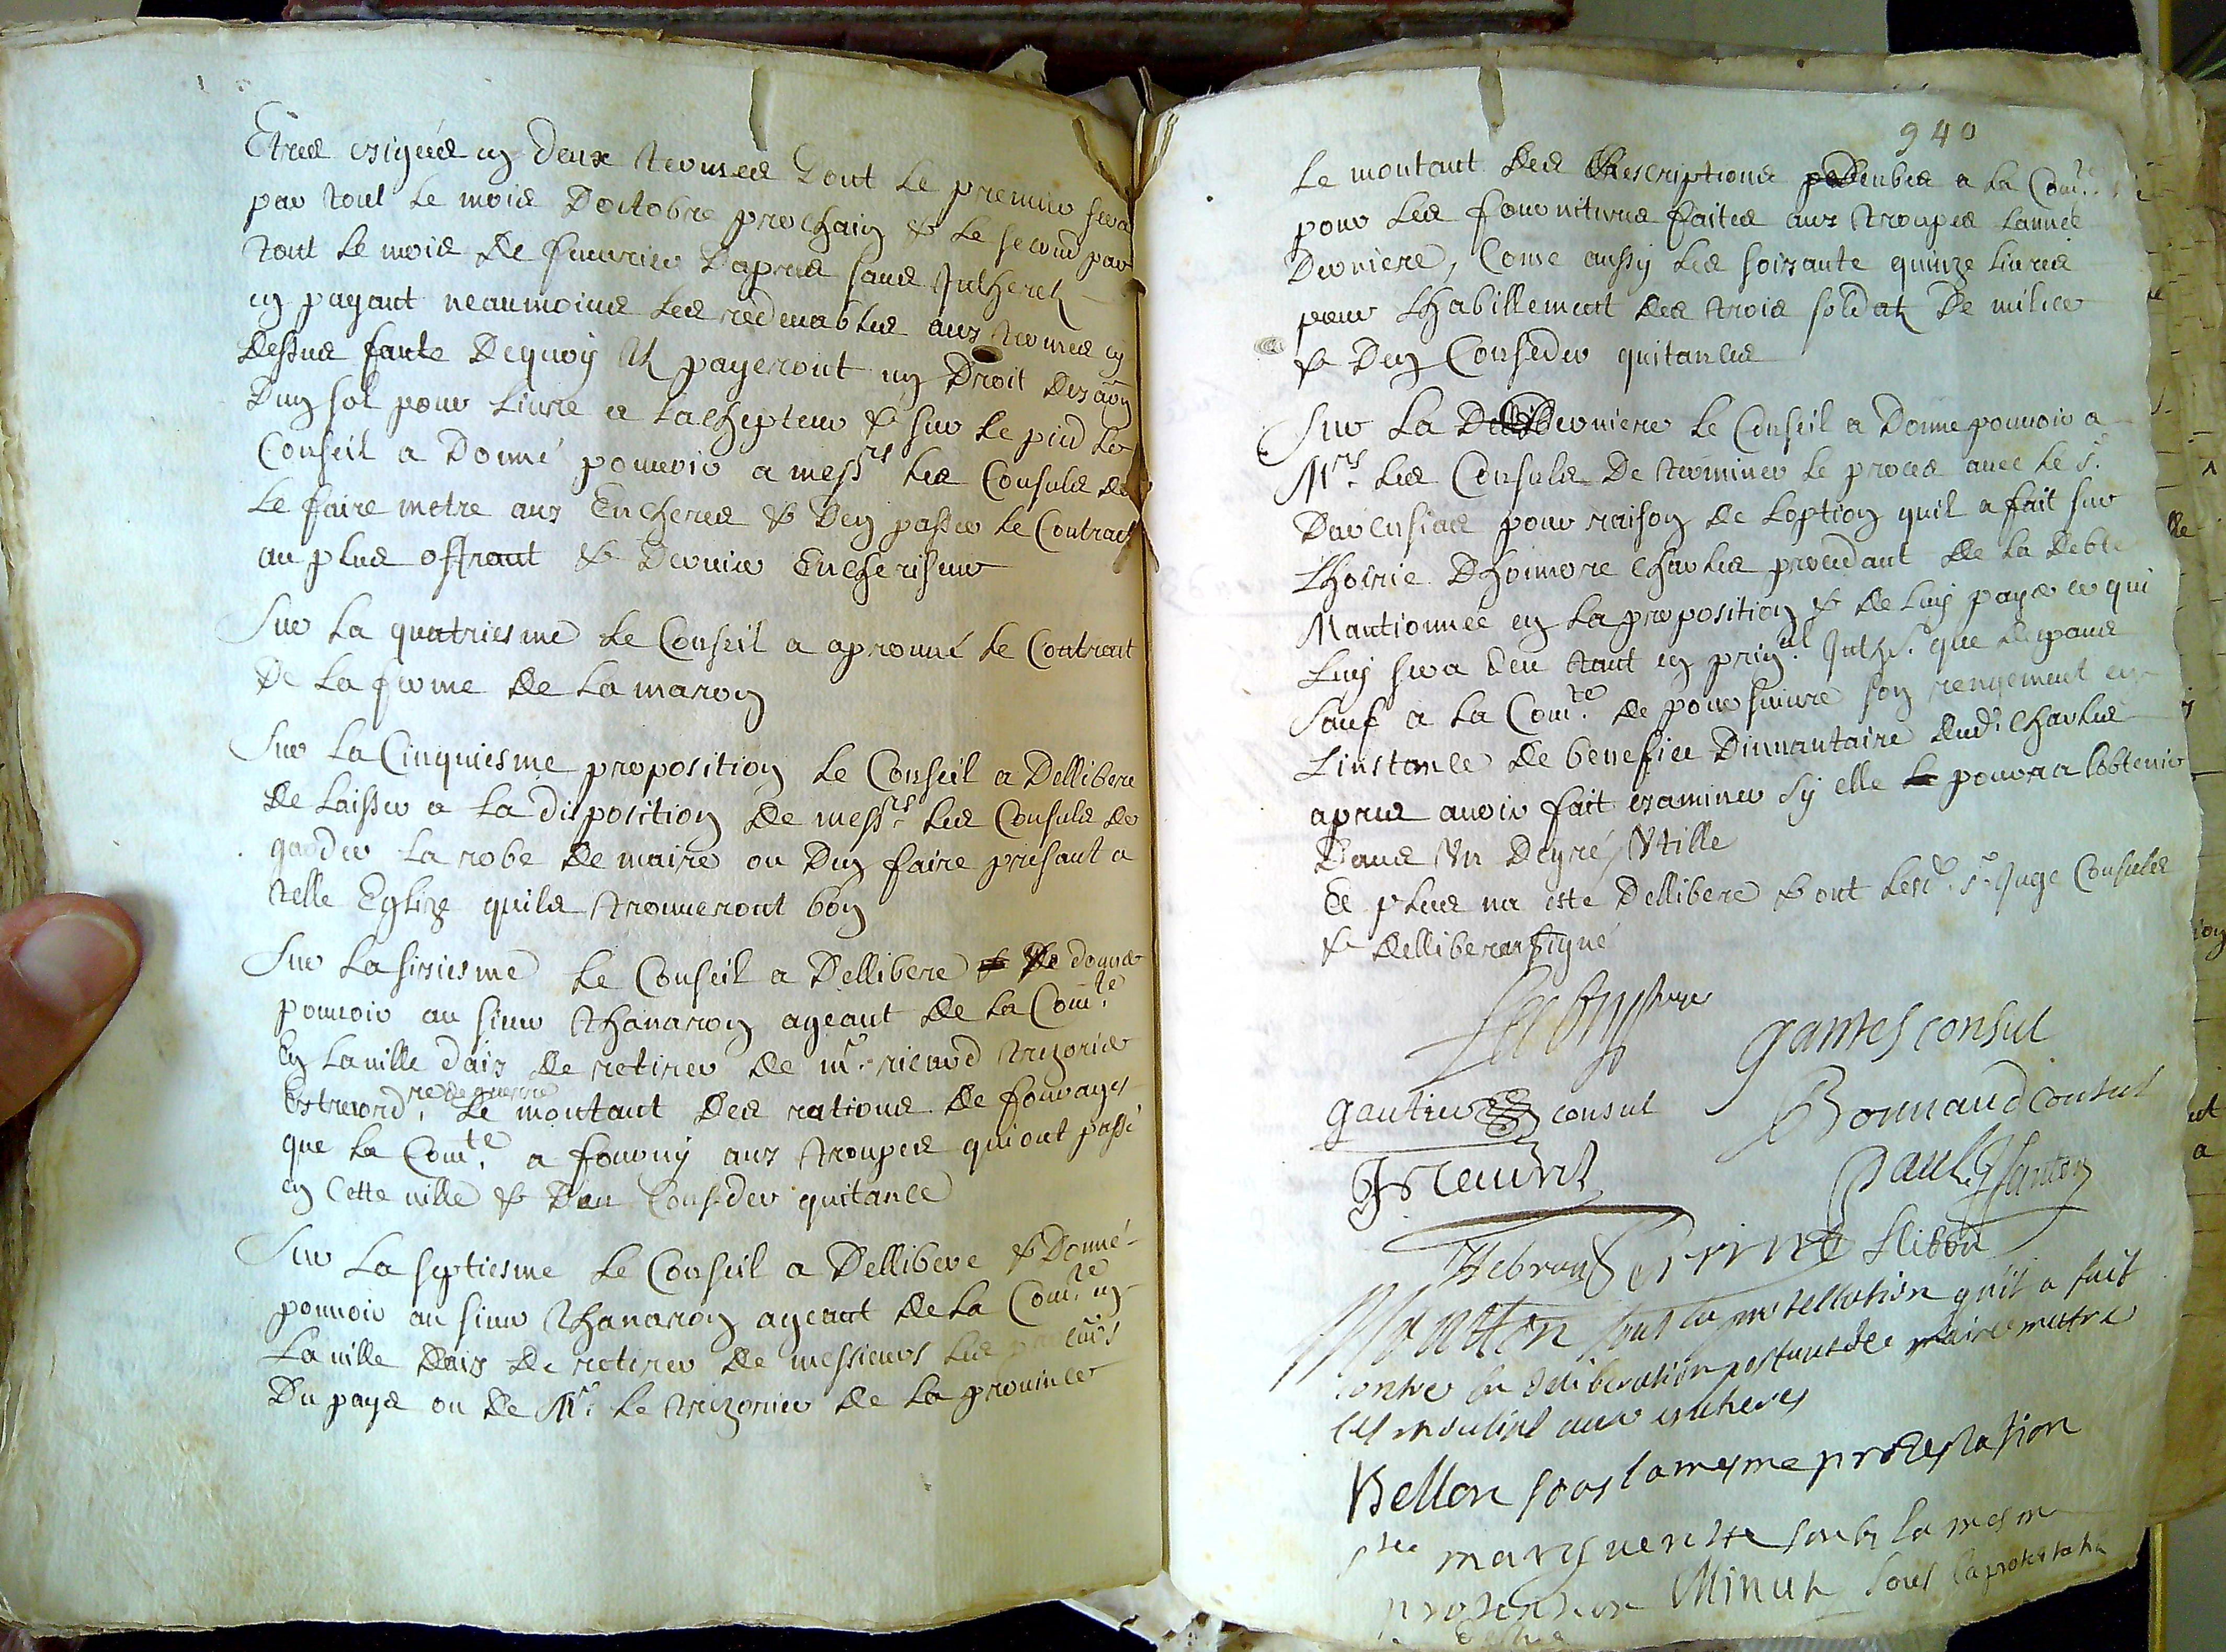 Etres exigées en deux termes dont le premier sera
par tout le mois doctobre prochain & le second par
tout le mois de feurier dapres sans Intherets
en payant neaumoins les redeuables aux termes cy
dessus faute dequoy Ils payeront un droit dexaõn
dun sol pour liure a lachepteur & sur le pied le
Conseil a donné pouuoir a messrs les Consuls de
le faire metre aux Encheres & den passer le Contract
au plus offrant & dernier Encherisseur
Sur la quatriesme le Conseil a aprouué le Contrant
de la ferme de la maron
Sur la Cinquiesme proposition le Conseil a dellibere
de laisser a la disposition de messrs les Consuls de
garder la robe de maire ou den faire presant a
telle Eglize quils trouueront bon
Sur la sixiesme le Conseil a dellibere & de donner
pouuoir au sieur Thanaron ageant de la Comte
En la uille daix de retirer de mr. ricard trezorier
Extraordre de guerre le montant des rations de fourages
que la Comte a fourny aux troupes qui ont passé
en cette uille & den Conseder quitance
Sur la septiesme le Conseil a dellibere & donné
pouuoir au sieur Thanaron ageant de la Comte en
la uille daix de retirer de messieurs les
du pays ou de Mr. le trezorier de la prouince
940
Le montant des descriptions deubes a la Comte
pour les fournitures faites aux troupes lannée
derniere, Come aussy les soixante quinze liures
pour lhabillement des trois soldats de milice
& den Conseder quitances
Sur la derniere le Conseil a donne pouuoir a
Mrs. les Consuls de terminer le proces auec le Sr.
Dauensiac pour raison de loption quil a fait sur
lhoirie dhonnore Charles procedant de la debte
Mantionnée en la proposition & de luy payer ce qui
luy sera deu tant en prinal. Inths. que depans
Sauf a la Comte. de poursuiure son rengement en
Linstance de benefice dinuantaire dudt. Charles
apres auoir fait examiner sy elle le pourra lobtenir
dans Un degré Utille
Et plus na este dellibere & ont lesd. Sr. Juge Consuls
& delliberans signé
gantes consul
gautier consul
Bonnaud consul
Paul
Hebrard
Moutton sous la protestation qu'il a fait
contre la deliberation portant de faire mettre
les moulins aux encheres
Bellon sous la mesme protestation
margueritte soubs la mesme
protestation Minuty sous la protestation